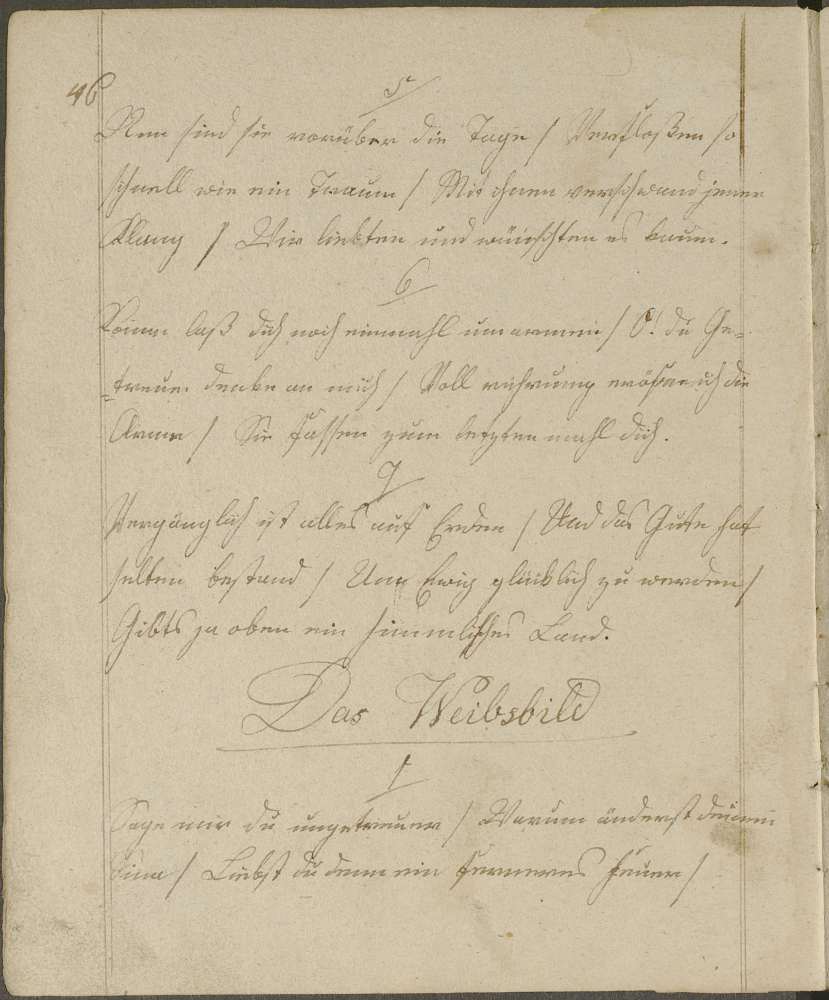 46
5
Nun sind sie vorüber die Tage / Verfloßen so
schnell wie ein Traum / Mit ihnen verschwand jener
Klang / Wir liebten und wünschten es kaum.
6
Komm laß dich noch einmahl umarmen / O! du Ge-
-treue denke an mich / Voll rührung eröfne ich die
Arme / Sie fassen zum letzten mahl dich.
7
Vergänglich ist alles auf Erden / Und das Gute hat
selten bestand / Um Ewig glücklich zu werden /
Gibts ja oben ein himmlisches Land.
Das Weibsbild
1
Sage mir du ungetreuer / Warum änderst deinen
Sinn / Liebst du denn ein ferneres feuer /